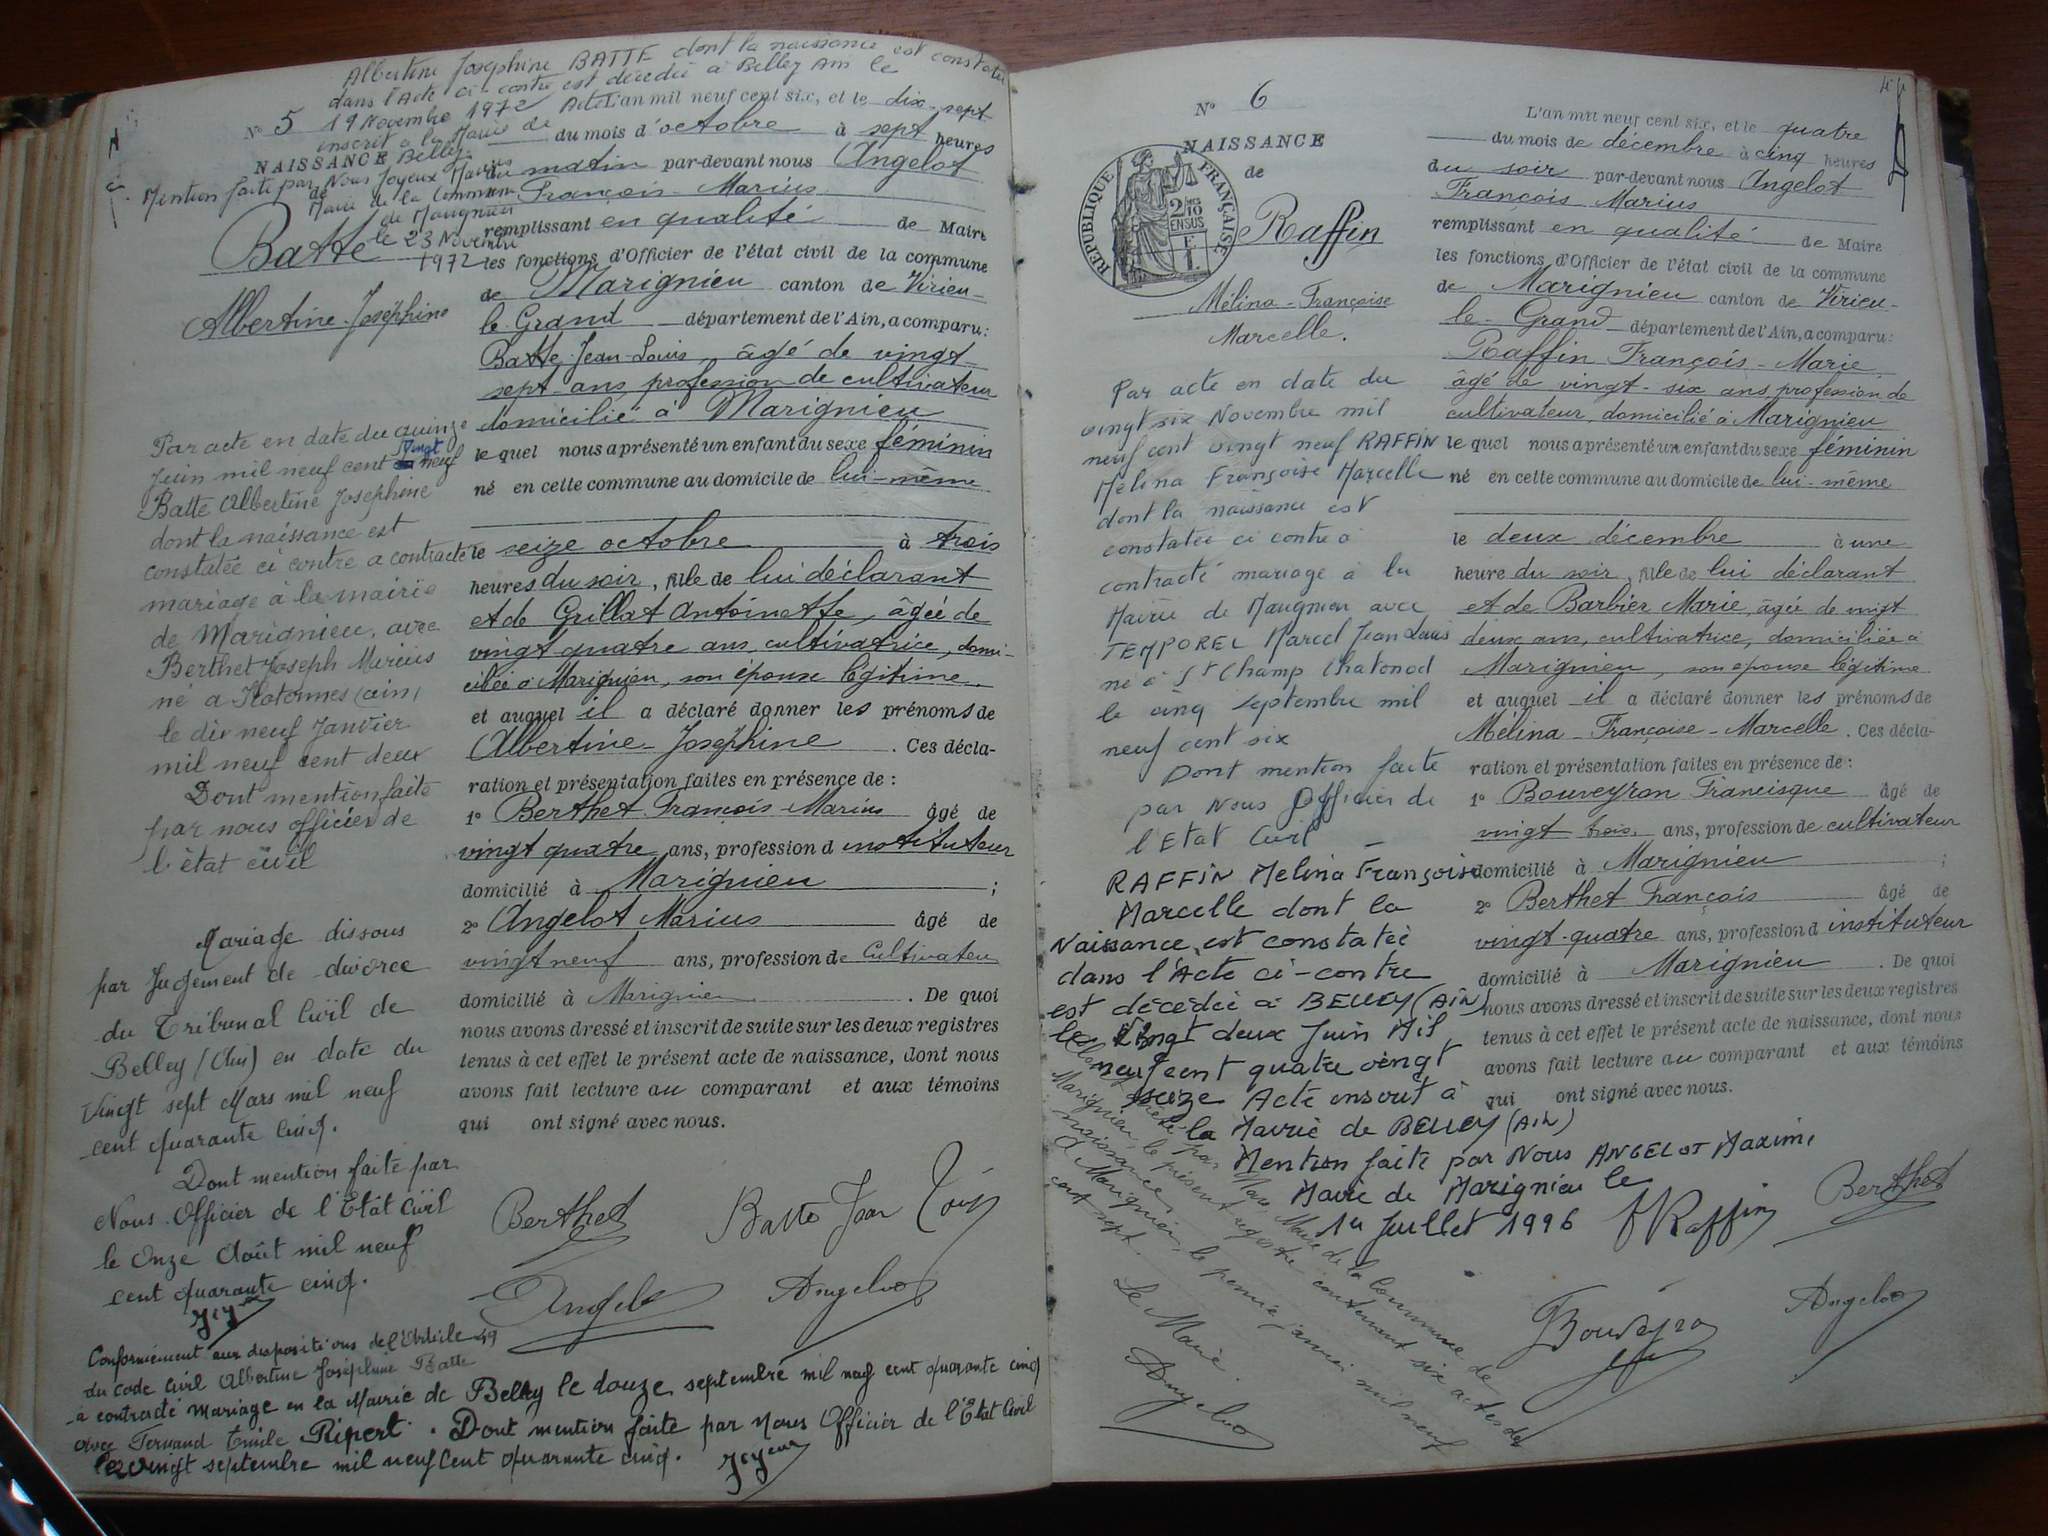 Albertine Josephine BATTE dont la naissance est constatée
dans l'Acte ci-contre est décédée à Belley Ain le
19 Novembre 1972 Acte
inscrit à la Mairie de
Belley.
Mention faite par Nous Joyeux
Maire de la Commune
de Marignieu
le 23 Novembre
1972
N° 5
NAISSANCE
de
Batte
Albertine-Joséphine
Par acte en date du quinze
Juin mil neuf cent vingt neuf
Batte Albertine Josephine
dont la naissance est
constatée ci contre a contracté
mariage à la mairie
de Marignieu, avec
Berthet Joseph Marius
né à Hotonnes (ain)
le dix neuf Janvier
mil neuf cent deux
Dont mention faite
par nous officier de
l'état civil
Mariage dissous
par Jugement de divorce
du Tribunal Civil de
Belley (Ain) en date du
Vingt sept Mars mil neuf
cent quarante cinq.
Dont mention faite par
Nous Officier de l'Etat Civil
le Onze Août mil neuf
cent quarante cinq.
Conformément aux dispositions de l'Article 49
du code Civil Albertine Joséphine Batte
a contracté mariage en la Mairie de Belley le douze septembre mil neuf cent quarante cinq
avec Fernand Emile Ripert. Dont mention faite par Nous Officier de l'Etat Civil
le vingt septembre mil neuf cent quarante cinq.
Joyeux
L'an mil neuf cent six, et le dix-sept
du mois d'octobre à sept heures
du matin par-devant nous Angelot
François-Marius
remplissant en qualité de Maire
les fonctions d'Officier de l'état civil de la commune
de Marignieu canton de Virieu-
le-Grand département de l'Ain, a comparu:
Batte Jean-Louis, âgé de vingt-
sept ans profession de cultivateur
domicilié à Marignieu
lequel nous a présenté un enfant du sexe féminin
né en cette commune au domicile de lui-même
le seize octobre à trois
heures du soir, fille de lui déclarant
et de Grillat Antoinette, âgée de
vingt quatre ans, cultivatrice, domi-
ciliée à Marignieu, son épouse légitime.
et auquel il a déclaré donner les prénoms de
Albertine-Joséphine. Ces décla-
ration et présentation faites en présence de:
1° Berthet François-Marius âgé de
vingt quatre ans, profession d instituteur
domicilié à Marignieu;
2° Angelot Marius âgé de
vingt neuf ans, profession de Cultivateur
domicilié à Marignieu. De quoi
nous avons dressé et inscrit de suite sur les deux registres
tenus à cet effet le présent acte de naissance, dont nous
avons fait lecture au comparant et aux témoins
qui ont signé avec nous.
Berthet Batte Jean Louis
Angelot Angelot
N° 6
NAISSANCE
de
RÉPUBLIQUE FRANÇAISE
2/10
EN SUS
Raffin
Mélina-Françoise
Marcelle.
Par acte en date du
vingt six Novembre mil
neuf cent vingt neuf RAFFIN
Melina Françoise Marcelle
dont la naissance est
constatée ci contre a
contracté mariage à la
Mairie de Marignieu avec
TEMPOREL Marcel Jean Louis
né à St Champ Chatonod
le cinq septembre mil
neuf cent six
Dont mention faite
par Nous Officier de
l'Etat Civil
RAFFIN Melina Françoise
Marcelle dont la
Naissance est constatée
dans l'Acte ci-contre
est décédée à BELLEY (AIN)
le Vingt deux Juin Mil
neuf cent quatre vingt
seize Acte inscrit à
la Mairie de BELLEY (AIN)
Mention faite par Nous ANGELOT Maxime
Maire de Marignieu le
1er Juillet 1996
par Nous, Maire de la Commune de
Marignieu, le présent registre contenant six actes de
naissance
à Marignieu, le premier janvier mil neuf
cent sept.
Le Maire
Angelot
L'an mil neuf cent six, et le quatre
du mois de décembre à cinq heures
du soir par-devant nous Angelot
François Marius
remplissant en qualité de Maire
les fonctions d'Officier de l'état civil de la commune
de Marignieu canton de Virieu-
le-Grand département de l'Ain, a comparu:
Raffin François-Marie
âgé de vingt-six ans, profession de
cultivateur, domicilié à Marignieu
lequel nous a présenté un enfant du sexe féminin
né en cette commune au domicile de lui-même
le deux décembre à une
heure du soir, fille de lui déclarant
et de Barbier Marie, âgée de vingt
deux ans, cultivatrice, domiciliée à
Marignieu, son épouse légitime
et auquel il a déclaré donner les prénoms de
Mélina-Françoise-Marcelle. Ces décla-
ration et présentation faites en présence de:
1° Bouveyron Francisque âgé de
vingt trois ans, profession de cultivateur
domicilié à Marignieu;
2° Berthet François âgé de
vingt-quatre ans, profession d instituteur
domicilié à Marignieu. De quoi
nous avons dressé et inscrit de suite sur les deux registres
tenus à cet effet le présent acte de naissance, dont nous
avons fait lecture au comparant et aux témoins
qui ont signé avec nous.
F Raffin Berthet
Bouveyron Angelot